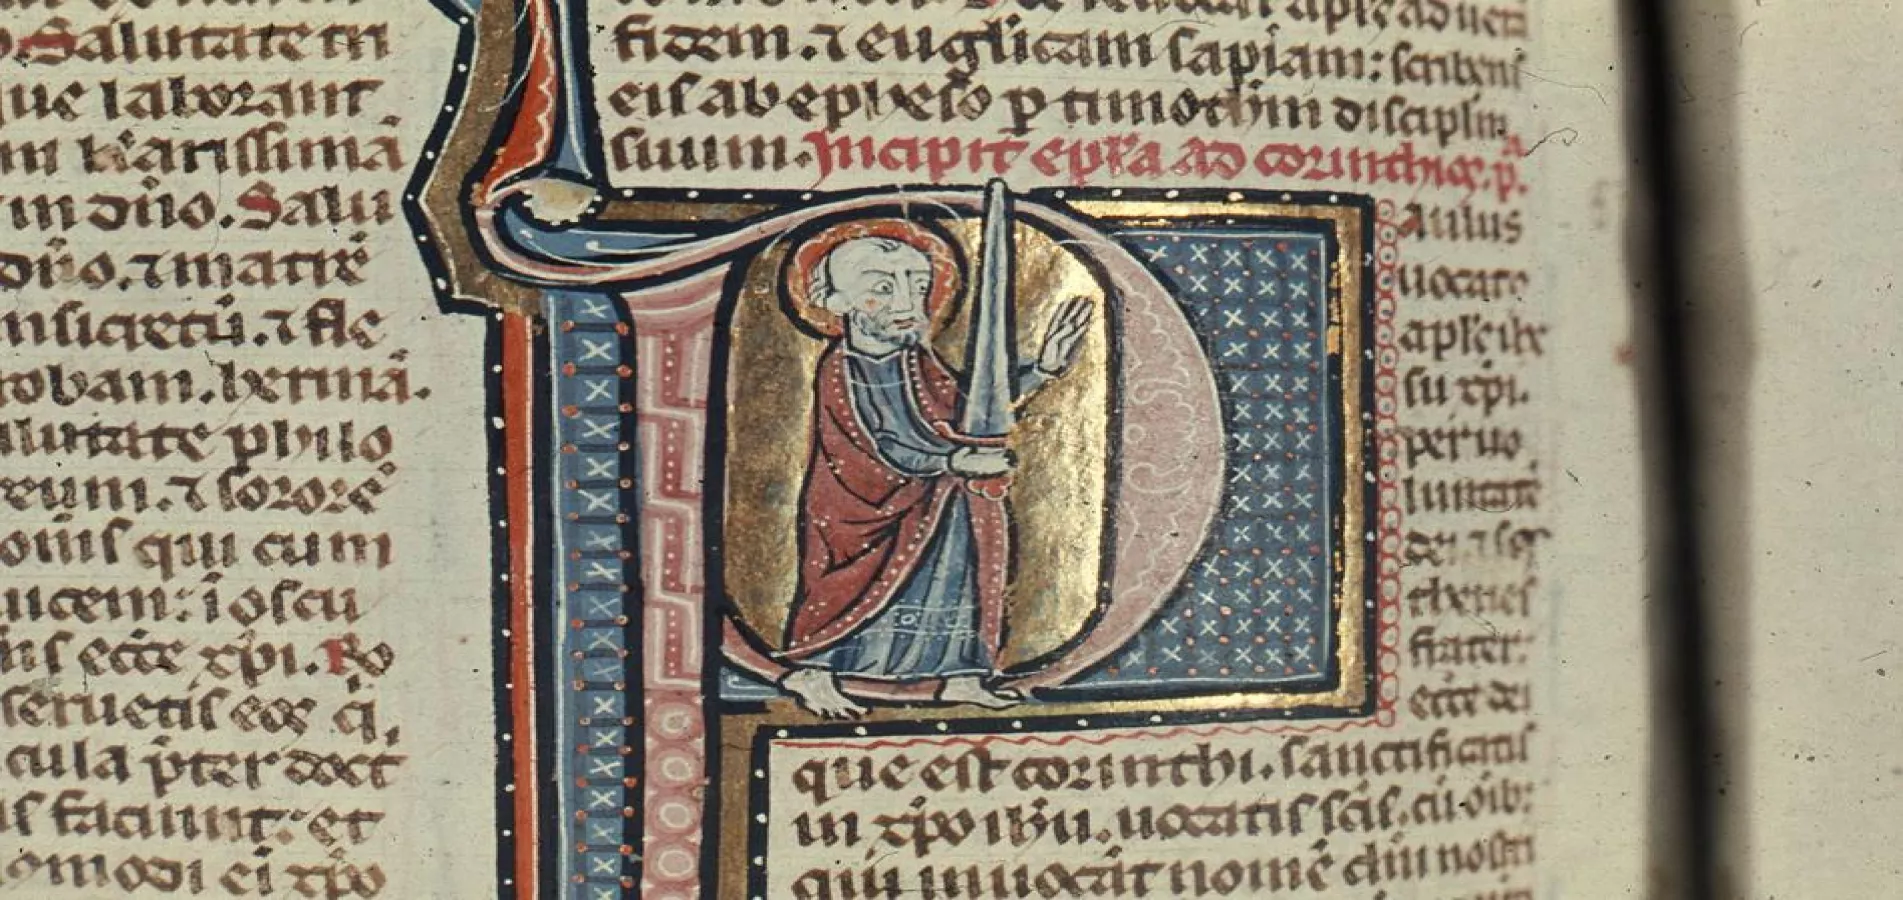 Salutate tri
que laborant
m karissimā
in dn̄o. Salu
dn̄o. ⁊ matrē
nsicretū. ⁊ fle
robam. hermā.
alutate philo
reum. ⁊ sororē
om̄s qui cum
ucem: ī oscu
eccē xp̄i. Ro
seruetis eos q̄
cula p̄ter doct
faciunt: et
omodi ei xp̄o
fidem. ⁊ euglicam sapiam: scribens
eis ab epheso p̱ timothm̄ discipl̄m
suum. Incipit epl̄a ad corinthios. p̄ͣ.
Aulus
uocatꝰ
apl̄s ihū
su xp̄i.
per uo
luntatē
dei ⁊ sos
thenes
frater:
eccē dei
que est corinthi. sanctificatis
in xp̄o ihū. uocatis scīs. cū oīb:
qui inuocāt nomē dn̄i nostri